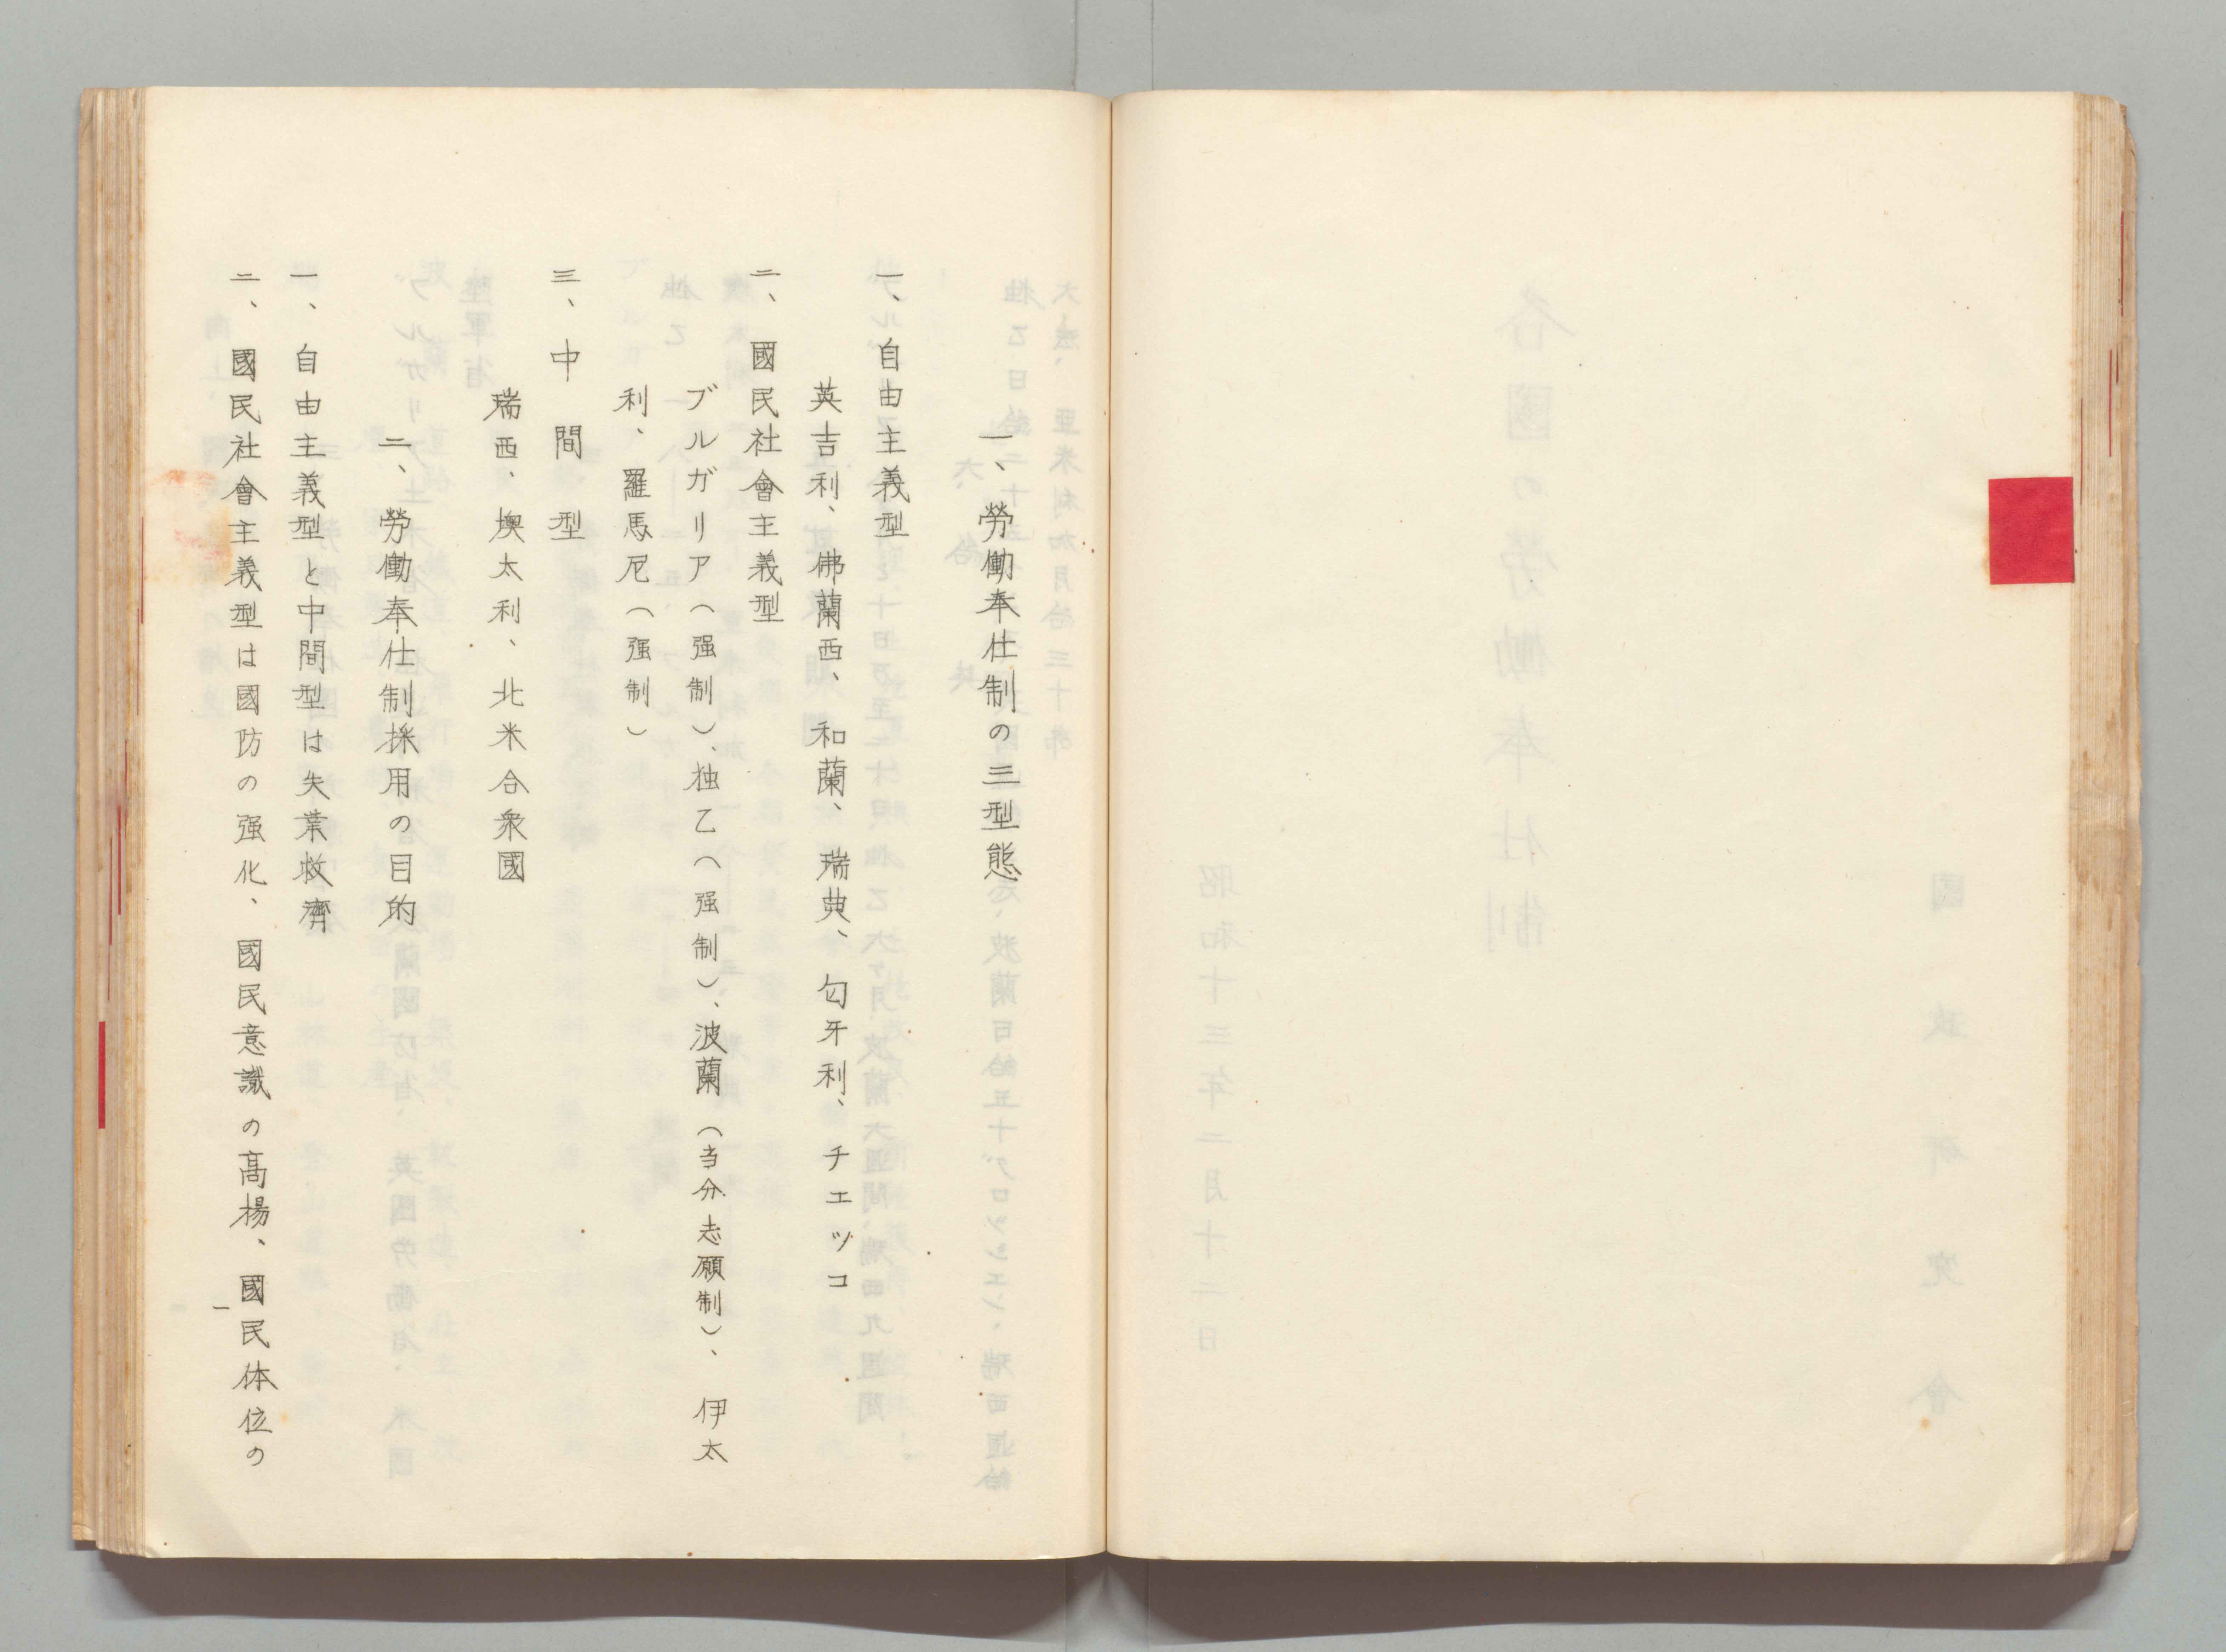 一、勞働奉仕制の三型態
一、自由主義型
英吉利、佛蘭西、和蘭、瑞典、匂牙利、チエツコ
二、國民社會主義型
ブルガリア（强制）、独乙（强制）、波蘭（当分志願制）、伊太
利、羅馬尼（强制）
三、中間型
瑞西、墺太利、北米合衆國
二、勞働奉仕制採用の目的
一、自由主義型と中間型は失業救濟
二、國民社會主義型は國防の强化、國民意識の高楊、國民体位の
一